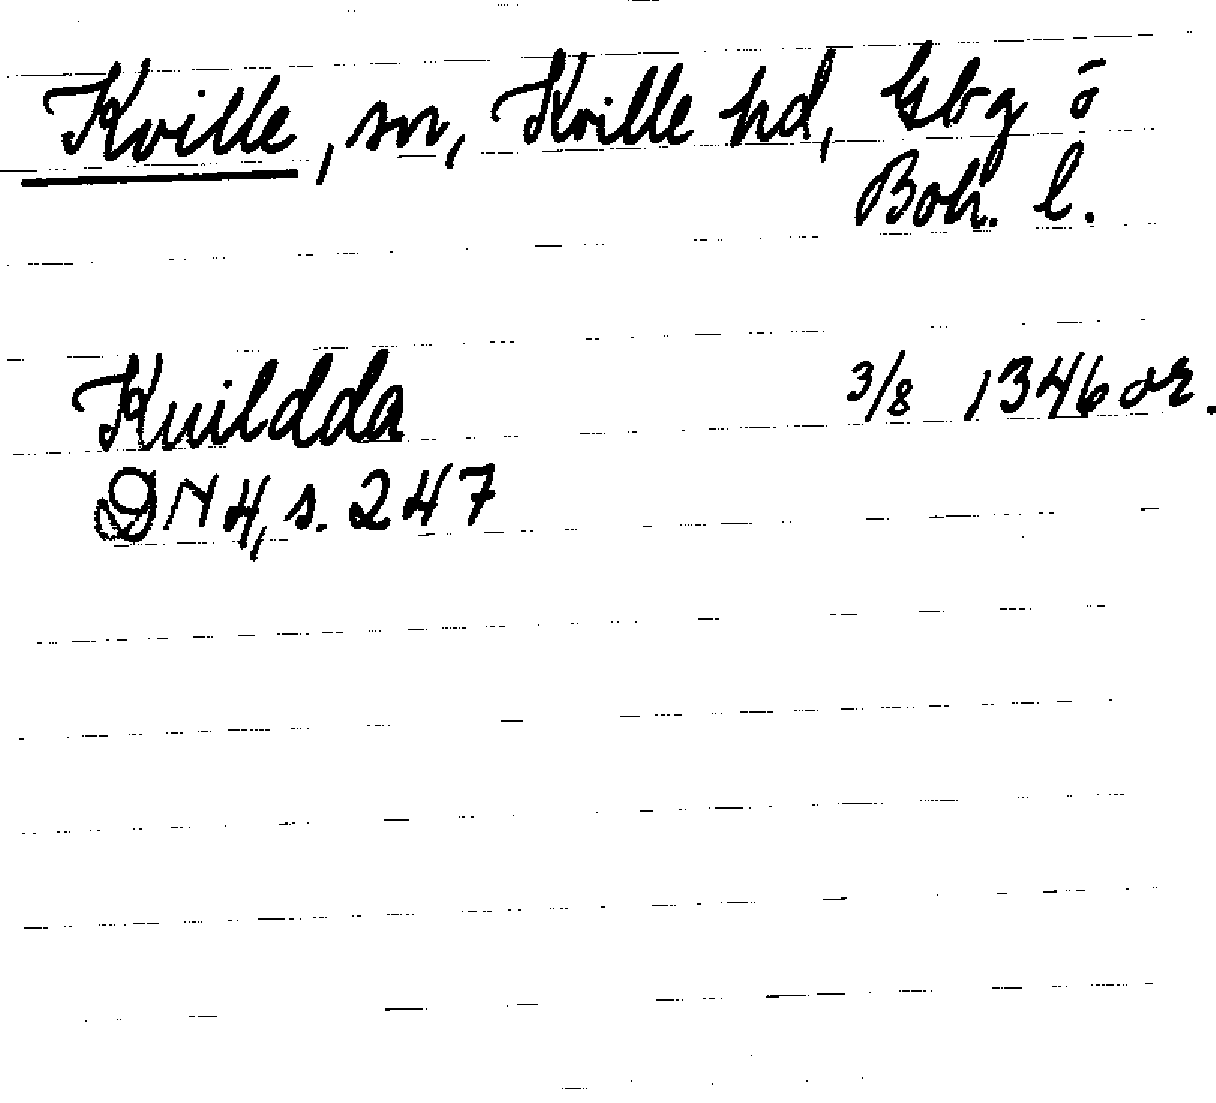 Kville, sn, Kville hd, Gbg o
Boh. l.
Kuildda 3/8 1346 or.
DN 4, s. 247